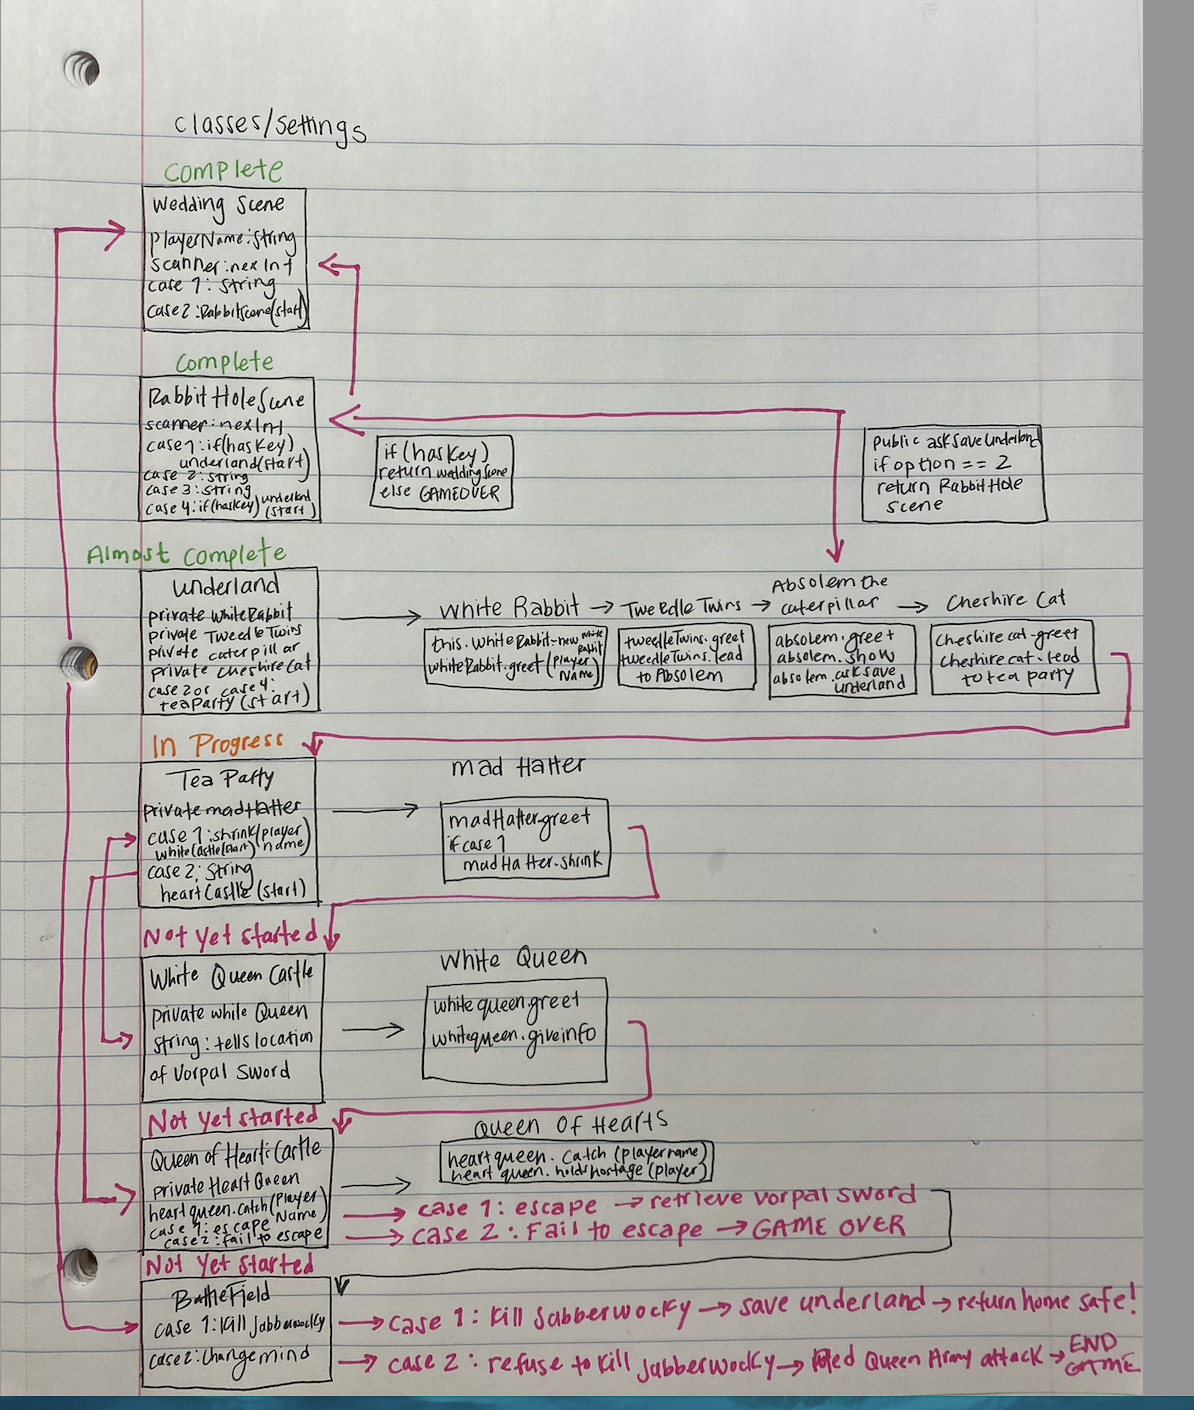 classes/settings
Complete
Wedding Scene
playerName:String
scanner:nexInt
case 1: String
case2:RabbitScene(start)
Complete
RabbitHoleScene
scanner:nexInt
case1:if(hasKey)
underland(start)
case 2:string
case 3:string
case 4:if(hasKey) underland
(start)
if(hasKey)
return weddingScene
else GAMEOVER
public askSaveUnderland
if option == 2
return RabbitHole
scene
Almost Complete
Underland
private whiteRabbit
private TweedleTwins
private caterpillar
private cheshireCat
case 2 or case 4:
teaParty(start)
White Rabbit
this.whiteRabbit=new White
Rabbit
whiteRabbit.greet(player
Name)
Tweedle Twins
tweedleTwins.greet
tweedleTwins.lead
to Absolem
Absolem the
caterpillar
absolem.greet
absolem.show
absolem.asksave
underland
Cheshire Cat
cheshirecat.greet
cheshirecat.lead
to tea party
In Progress
Tea Party
private madHatter
case 1:shrink(player
whiteCastle(start) name)
case 2:String
heartCastle(start)
mad Hatter
madHatter.greet
if case 1
madHatter.shrink
Not yet started
White Queen Castle
private white Queen
string: tells location
of Vorpal Sword
White Queen
whitequeen.greet
whitequeen.giveinfo
Not yet started
Queen of Hearts Castle
private Heart Queen
heartqueen.catch(Player
Name)
case 1:escape
case2:fail to escape
Queen Of Hearts
heartqueen.catch(playername)
heartqueen.holdshostage(player)
case 1: escape → retrieve vorpal sword
case 2: Fail to escape → GAME OVER
Not yet started
BattleField
case 1:Kill Jabberwocky
case2:Changemind
case 1: Kill Jabberwocky → save underland → return home safe!
case 2: refuse to kill jabberwocky → Red Queen Army attack → END
GAME